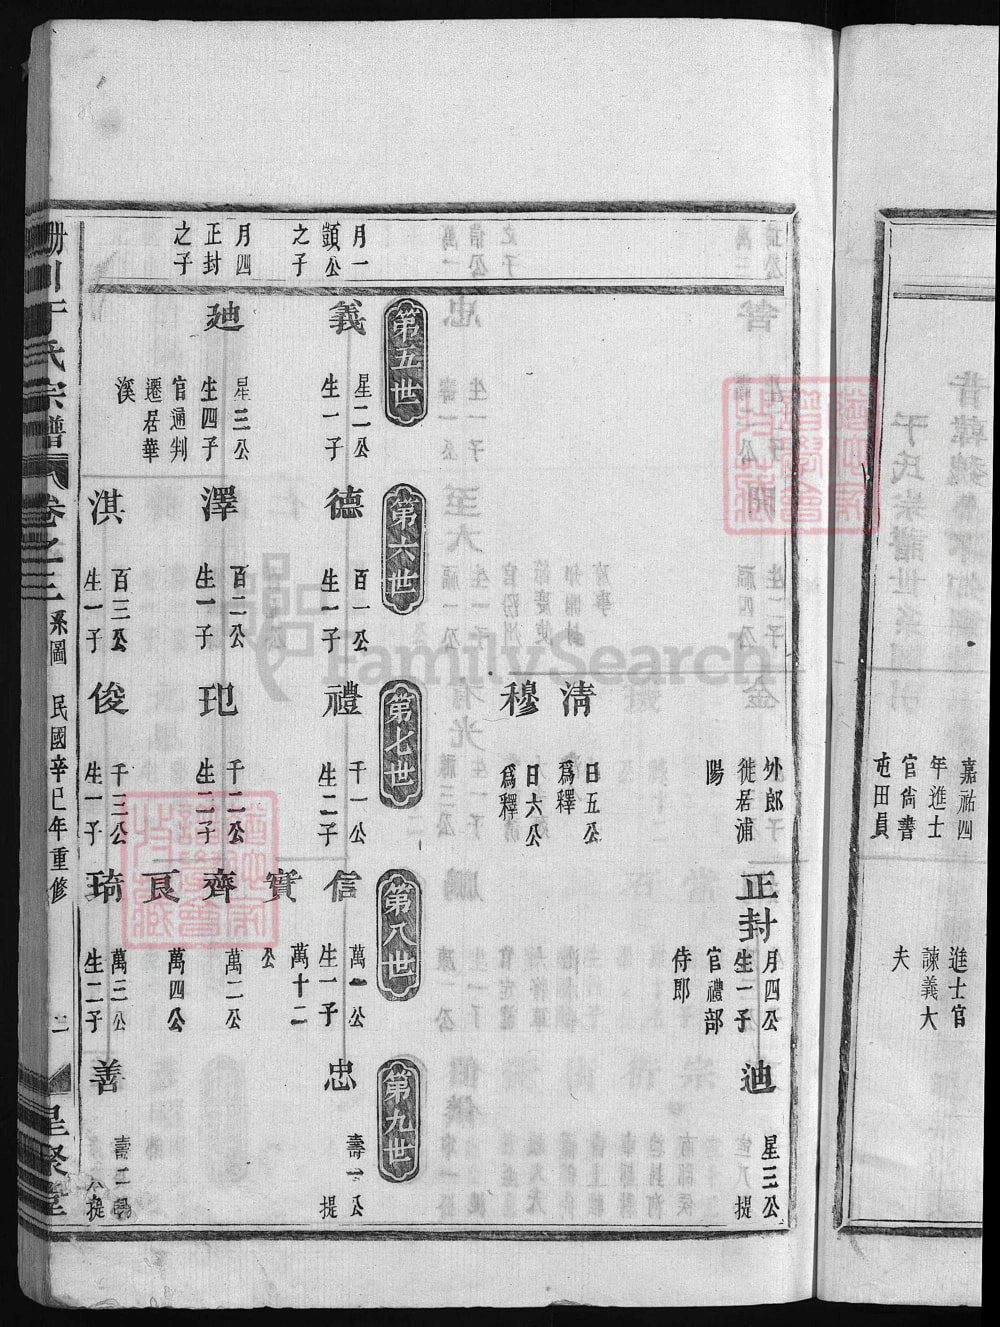 嘉祐四
年進士
官尙書
屯田員
進士官
諫義大
夫
外郎
徙居浦
陽
正封
月四公
生一子
官禮部
侍郎
迪
星三公
提
淸
日五公
爲釋
穆
日六公
爲釋
第五世
第六世
第七世
第八世
第九世
月一
顗公
之子
義
星二公
生一子
德
百一公
生一子
禮
千一公
生二子
信
萬一公
生一子
忠
壽一公
提
實
萬十二
公
月四
正封
之子
迪
星三公
生四子
官通判
遷居華
溪
澤
百二公
生一子
玘
千二公
生二子
齊
萬二公
良
萬四公
淇
百三公
生一子
俊
千三公
生一子
琦
萬三公
生二子
善
壽二
提
川于氏宗譜
卷之三
系圖
民國辛巳年重修
二
星聚堂
FamilySearch